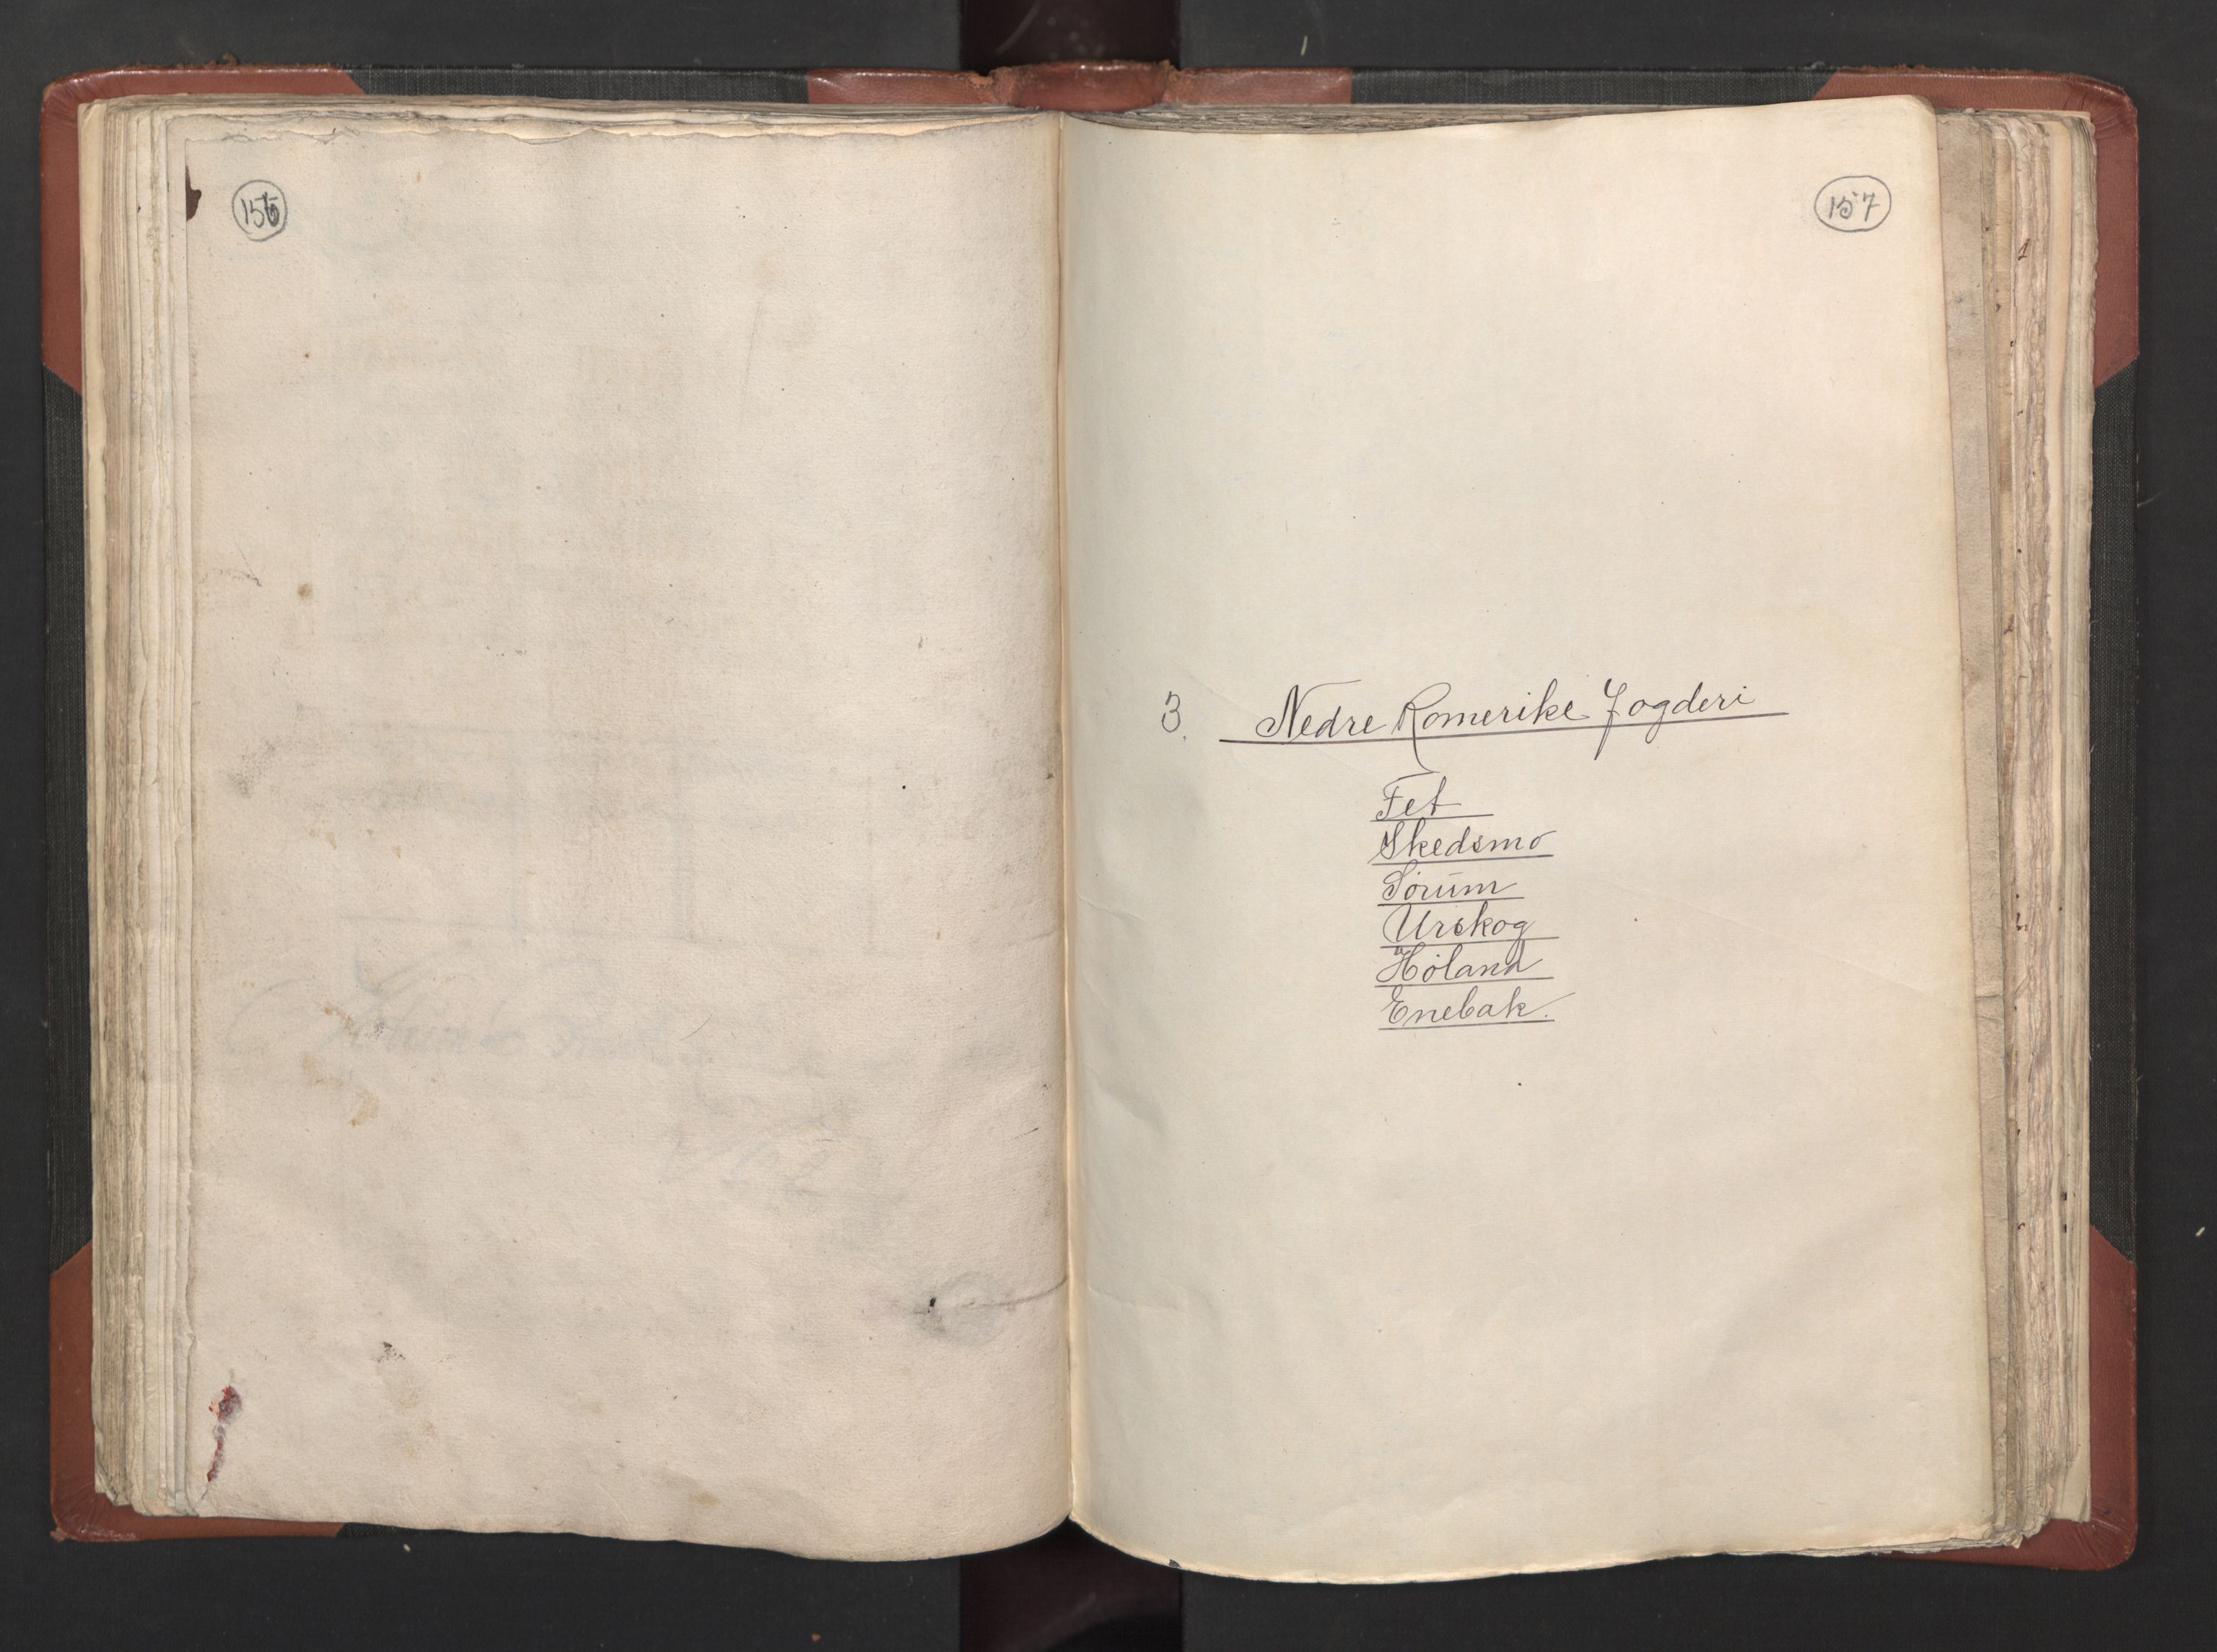 156
157
3. Nedre Romerike Fogderi
Fet
Skedsmo
Sørum
Urskog
Høland
Enebak.